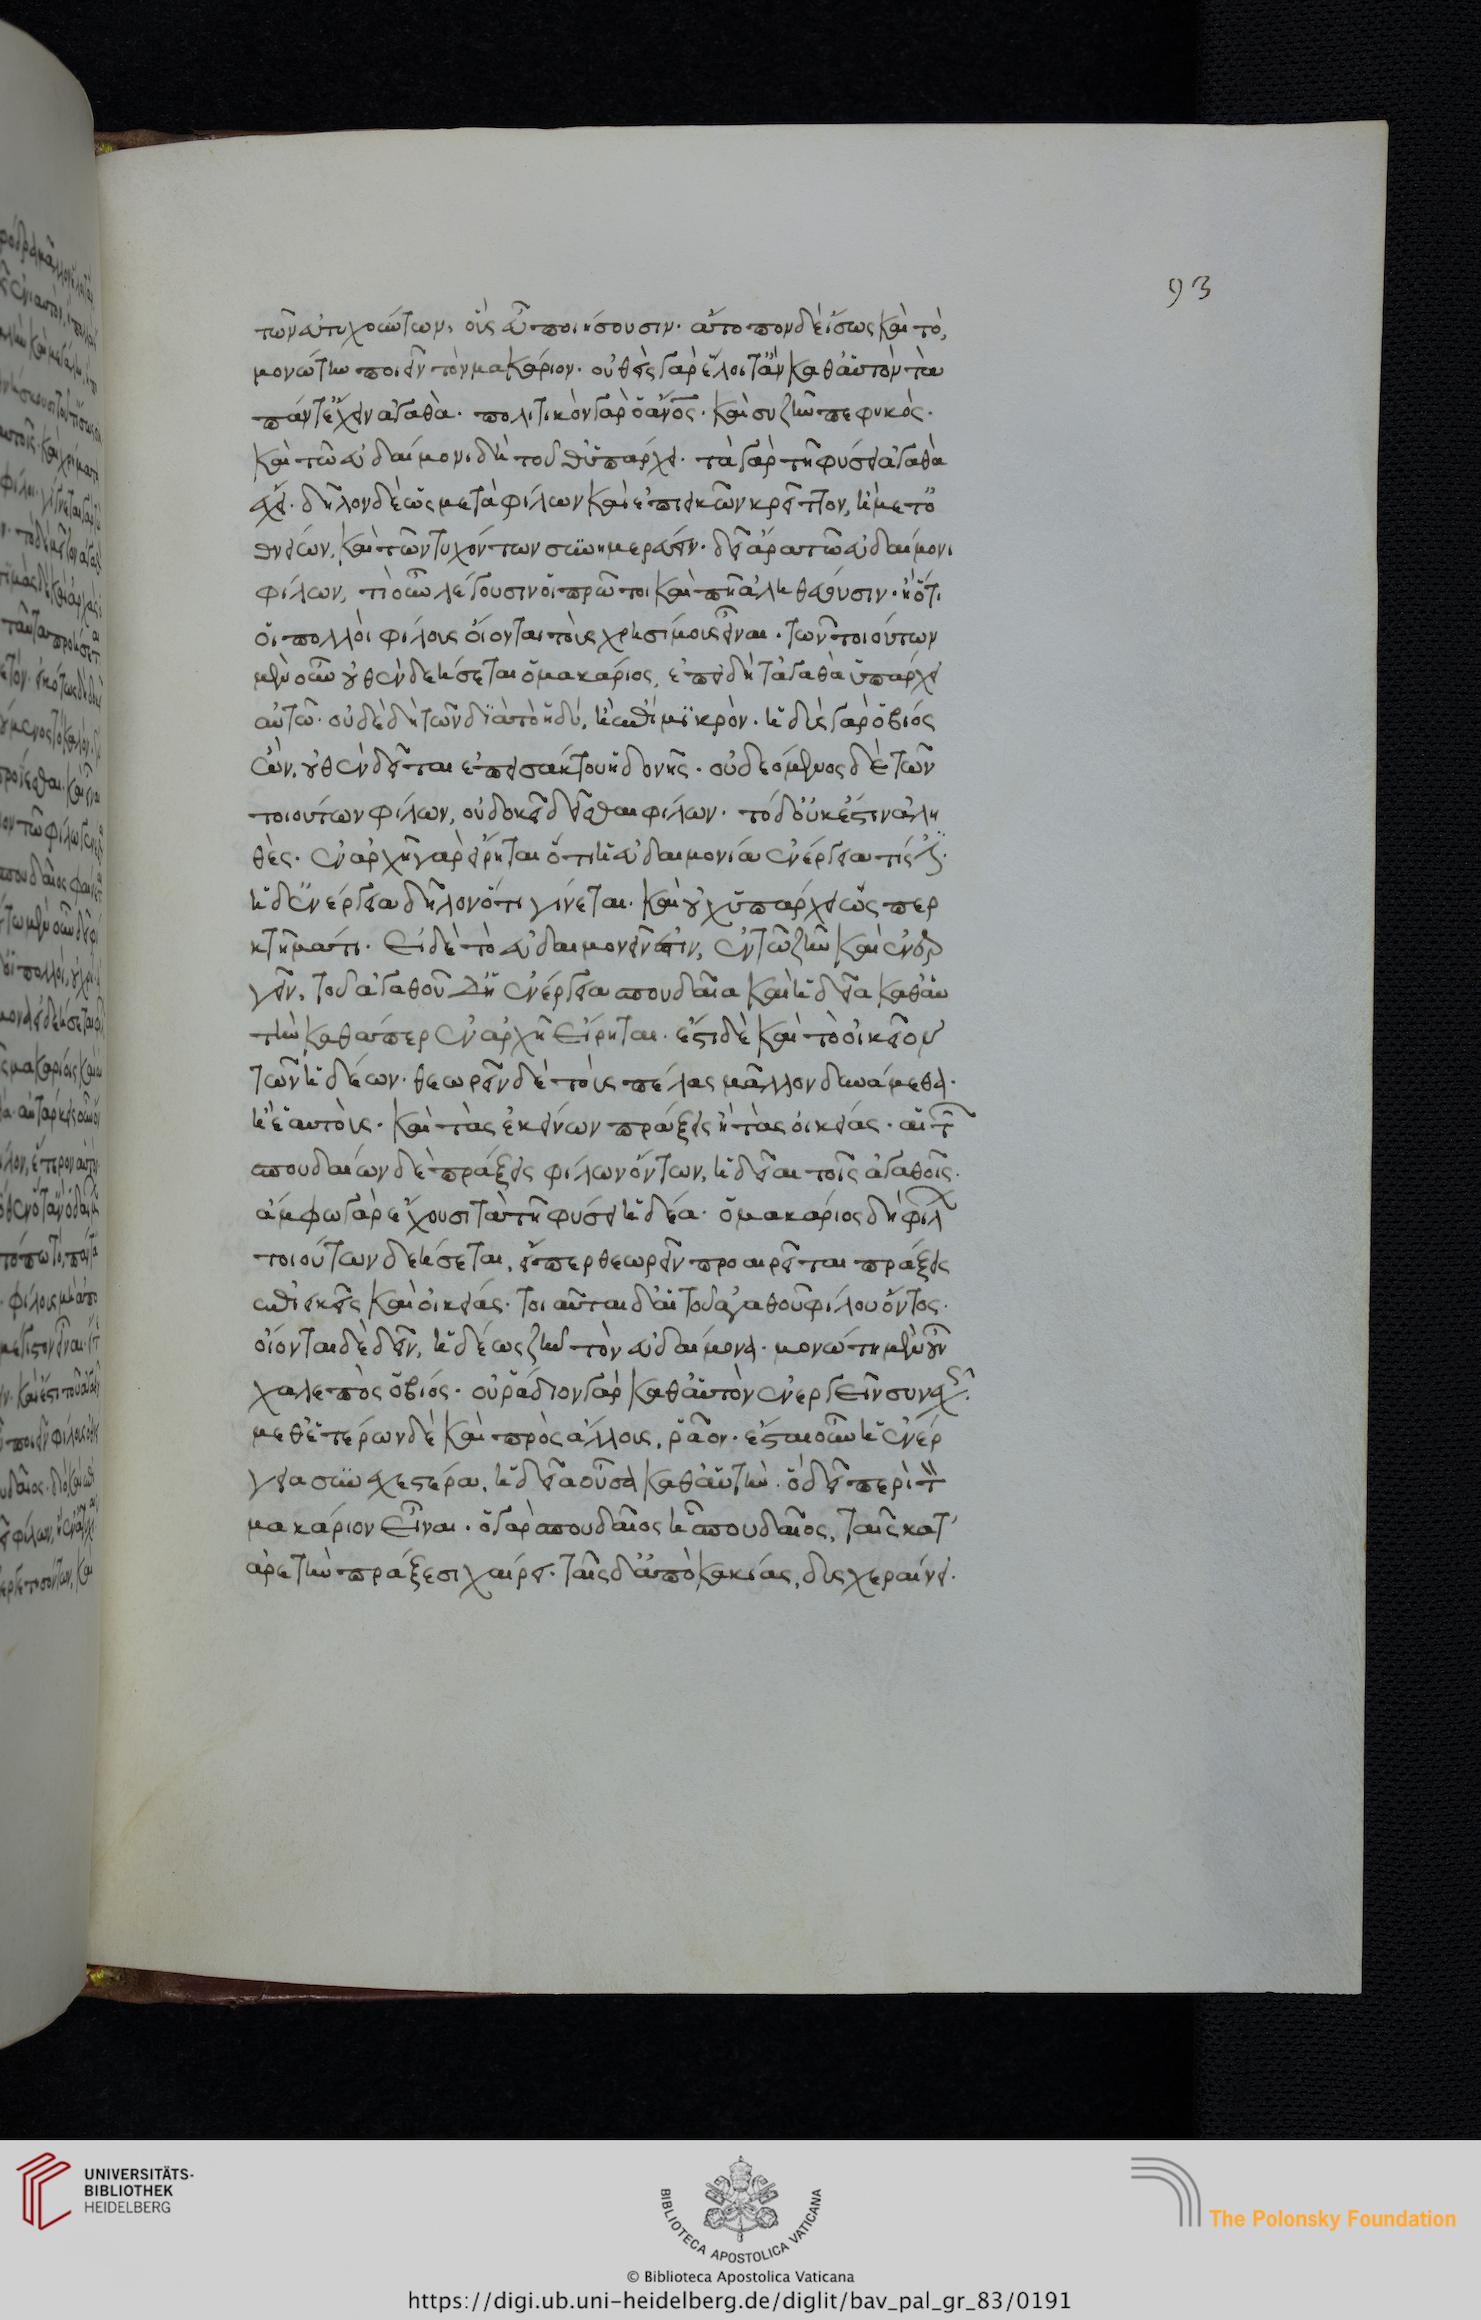 93
τῶν εὐτυχούντων, οὓς εὖ ποιήσουσιν· ἄτοπον δὲ ἴσως καὶ τὸ,
μονώτην ποιεῖν τὸν μακάριον· οὐθεὶς γὰρ ἕλοιτ' ἂν καθ' αὑτὸν τὰ
πάντ' ἔχειν ἀγαθὰ· πολιτικὸν γὰρ ὁ ἄνος· καὶ συζῆν πεφυκὸς·
καὶ τῶ εὐδαίμονι δὴ τοῦθ' ὑπάρχει· τὰ γὰρ τῆ φύσει ἀγαθὰ
ἔχει· δῆλον δὲ ὡς μετὰ φίλων καὶ ἐπιεικῶν κρεῖττον, ἢ μετ' ὀ
θνείων, καὶ τῶν τυχόντων συνημερεύειν· δεῖ ἄρα τῶ εὐδαίμονι
φίλων, τί οὖν λέγουσιν οἱ πρῶτοι καὶ πῆ ἀληθεύουσιν· ἢ ὅτι
οἱ πολλοὶ φίλους οἴονται τοὺς χρησίμους εἶναι· τῶν τοιούτων
μὲν οὖν οὐθὲν δεήσεται ὁ μακάριος, ἐπειδὴ τἀγαθὰ ὑπάρχει
αὐτῶ· οὐδὲ δὴ τῶν διὰ τὸ ἡδύ, ἢ ἐπὶ μικρὸν· ἡδὺς γὰρ ὁ βίος
ὢν, οὐθὲν δεῖται ἐπεισάκτου ἡδονῆς· οὐ δεόμενος δὲ τῶν
τοιούτων φίλων, οὐ δοκεῖ δεῖσθαι φίλων· τὸ δ' οὐκ ἔστιν ἀλη
θὲς· ἐν ἀρχῆ γὰρ εἴρηται ὅτι ἡ εὐδαιμονία ἐνέργεια τίς ἐστι·
ἡ δ' ἐνέργεια δῆλον ὅτι γίνεται· καὶ οὐχ ὑπάρχει ὥσπερ
κτῆμά τι· εἰ δὲ τὸ εὐδαιμονεῖν ἐστὶν, ἐν τῶ ζῆν καὶ ἐνερ
γεῖν, τοῦ δ' ἀγαθοῦ δὴ ἐνέργεια σπουδαῖα καὶ ἡδεῖα καθ' αὑ
τὴν καθάπερ ἐν ἀρχῆ εἴρηται· ἔστι δὲ καὶ τὸ οἰκεῖον
τῶν ἡδέων· θεωρεῖν δὲ τοὺς πέλας μᾶλλον δυνάμεθα·
ἢ ἑαυτοὺς· καὶ τὰς ἐκείνων πράξεις ἢ τὰς οἰκείας· αἱ τῶν
σπουδαίων δὲ πράξεις φίλων ὄντων, ἡδεῖαι τοῖς ἀγαθοῖς·
ἄμφω γὰρ ἔχουσι τὰ τῆ φύσει ἡδέα· ὁ μακάριος δὴ φίλων
τοιούτων δεήσεται, εἴπερ θεωρεῖν προαιρεῖται πράξεις
ἐπιεικεῖς καὶ οἰκείας· τοιαῦται δ' αἱ τοῦ ἀγαθοῦ φίλου ὄντος·
οἴονται δὲ δεῖν, ἡδέως ζῆν τὸν εὐδαίμονα· μονώτη μὲν οὖν
χαλεπὸς ὁ βίος· οὐ ῥάδιον γὰρ καθ' αὑτὸν ἐνεργεῖν συνεχῶς·
μεθ' ἑτέρων δὲ καὶ πρὸς ἄλλους, ῥᾶον· ἔσται οὖν ἡ ἐνέρ
γεια συνεχεστέρα, ἡδεῖα οὖσα καθ' αὑτὴν· ὃ δεῖ περὶ τὸν
μακάριον εἶναι· ὁ γὰρ σπουδαῖος ᾗ σπουδαῖος, ταῖς κατ'
ἀρετὴν πράξεσι χαίρει· ταῖς δ' ἀπὸ κακίας, δυσχεραίνει·
UNIVERSITÄTS-
BIBLIOTHEK
HEIDELBERG
BIBLIOTECA APOSTOLICA VATICANA
The Polonsky Foundation
© Biblioteca Apostolica Vaticana
https://digi.ub.uni-heidelberg.de/diglit/bav_pal_gr_83/0191